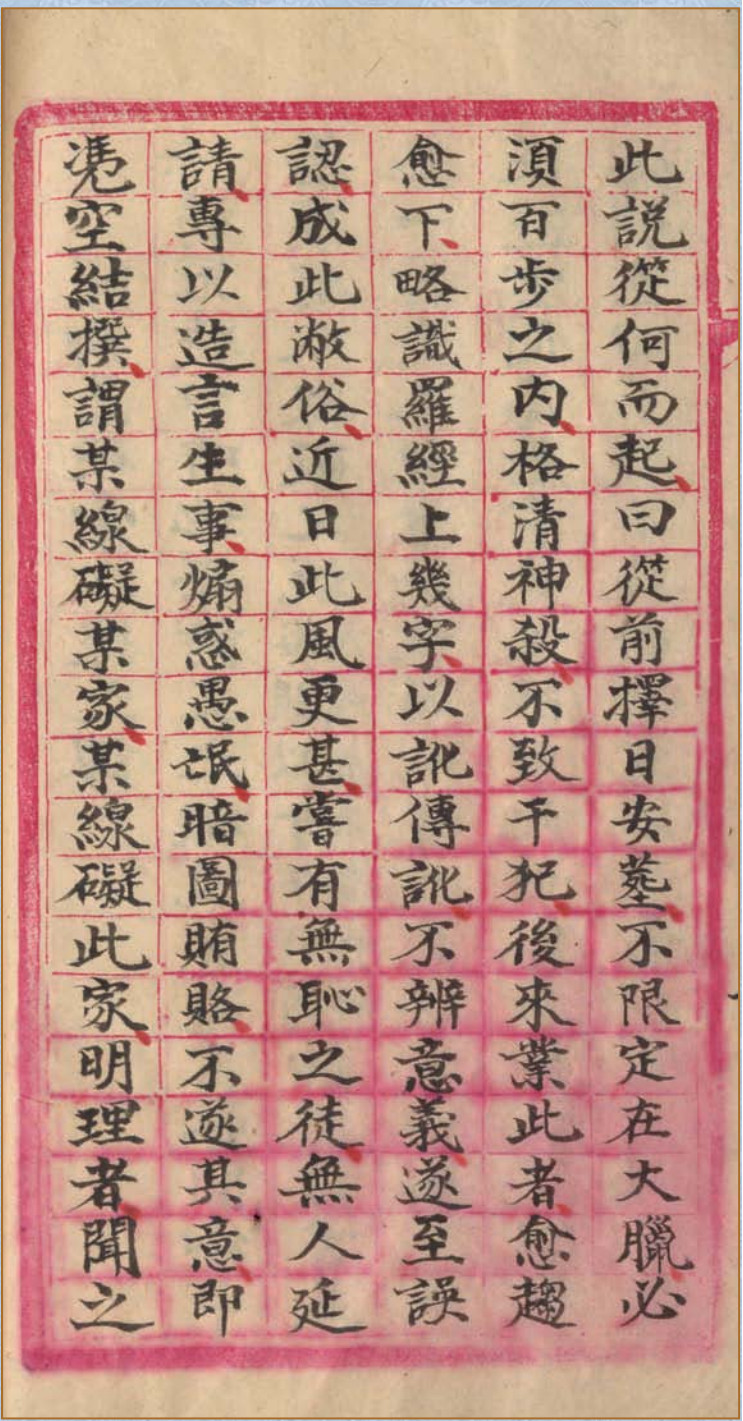 此説從何而起曰從前擇日安塟不限定在大臘必
湏百步之内格清神殺不致干犯後來業此者愈趨
愈下略識羅經上幾字以訛傳訛不辨意義遂至誤
認成此敝俗近日此風更甚嘗有無恥之徒無人延
請專以造言生事煽惑愚氓暗圖賄賂不遂其意即
凴空結撰謂某線礙某家某線礙此家明理者聞之